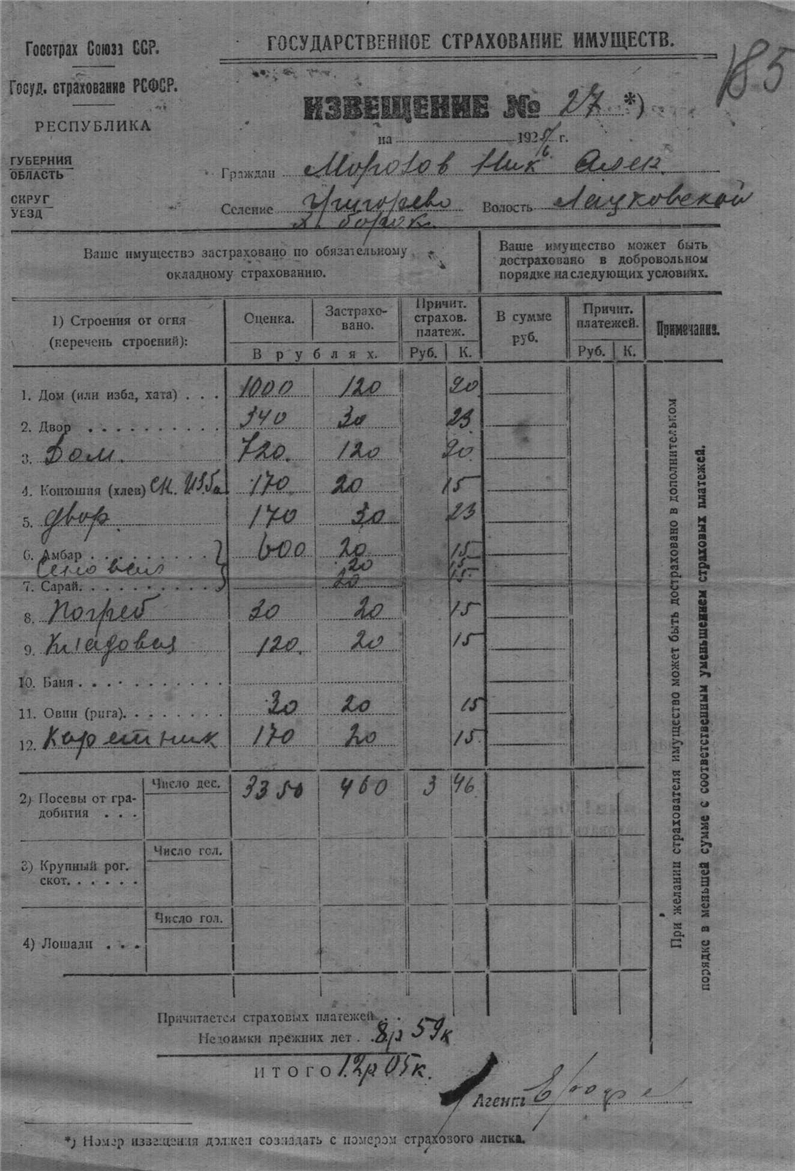 Госстрах Союза ССР.
Госуд. страхование РСФСР.
РЕСПУБЛИКА
ГУБЕРНИЯ
ОБЛАСТЬ
ОКРУГ
УЕЗД
ГОСУДАРСТВЕННОЕ СТРАХОВАНИЕ ИМУЩЕСТВ.
185
ИЗВЕЩЕНИЕ № 27 *)
на 192 г.
Граждан Морозов Ник Алек.
Селение Григорево Волость Лацковской
х. борок
Ваше имущество застраховано по обязательному окладному страхованию.
Ваше имущество может быть достраховано в добровольном порядке на следующих условиях.
1) Строения от огня (перечень строений): Оценка. Застраховано. Причит. страхов. платеж. В сумме руб. Причит. платежей. Примечания.
В рублях. Руб. К. Руб. К.
1. Дом (или изба, хата) . . . 1000 120 90
2. Двор . . . . . . . . . 340 30 23
3. Дом. 720. 120 90
4. Конюшня (хлев) ск. изба 170 20 15
5. Двор. 170 30 23
6. Амбар . . . . . . . . 600 20 15
20 15
7. Сарай. . . . . . . . . 20 15
8. Погреб 30 20 15
9. Кладовая 120. 20 15
10. Баня . . . . . . . . . .
11. Овин (рига). . . . . . . 30 20 15
12. Каретник 170 20 15
2) Посевы от градобития . . . Число дес. 3350 460 3 46
3) Крупный рог. скот. . . . . . Число гол.
4) Лошади . . . Число гол.
При желании страхователя имущество может быть достраховано в дополнительном
порядке в меньшей сумме с соответственным уменьшением страховых платежей.
Причитается страховых платежей. . .
Недоимки прежних лет . . 8р 59к
ИТОГО 12р 05к.
Агент
*) Номер извещения должен совпадать с номером страхового листка.